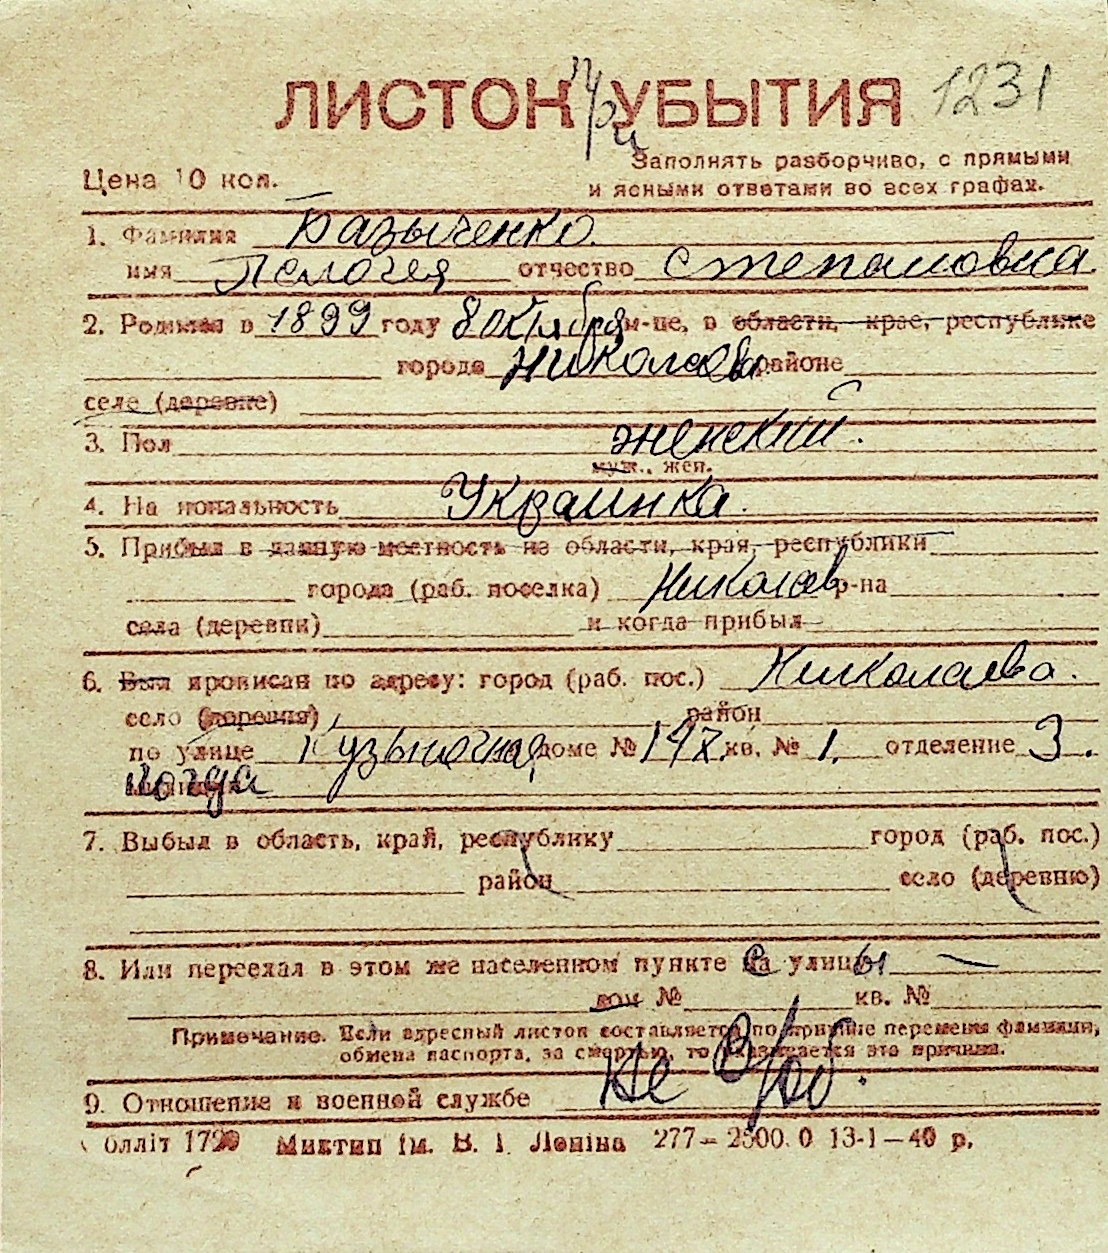 ЛИСТОК при УБЫТИЯ 1231
Цена 10 коп.
Заполнять разборчиво, с прямыми
и ясными ответами во всех графах.
1. Фамилия Базыченко.
имя Пелогея отчество Степановна.
2. Родился в 1899 году 8 октября м-це, в области, крае, республике
города Николаева районе
селе (деревне)
3. Пол женский.
муж., жен.
4. Национальность Украинка.
5. Прибыл в данную местность из области, края, республики
города (раб. поселка) Николаев р-на
села (деревни) и когда прибыл
6. Был прописан по адресу: город (раб. пос.) Николаева.
село (деревня) район
по улице Кузнечная доме № 147 кв. № 1. отделение 3.
когда
7. Выбыл в область, край, республику город (раб. пос.)
район село (деревню)
8. Или переехал в этом же населенном пункте с улицы —
дом № кв. №
Примечание. Если адресный листок составляется по причине перемены фамилии,
обмена паспорта, за смертью, то указывается эта причина.
9. Отношение к военной службе не в/об.
Миктип ім. В. І. Леніна 277 — 2500.0 13-1—40 р.